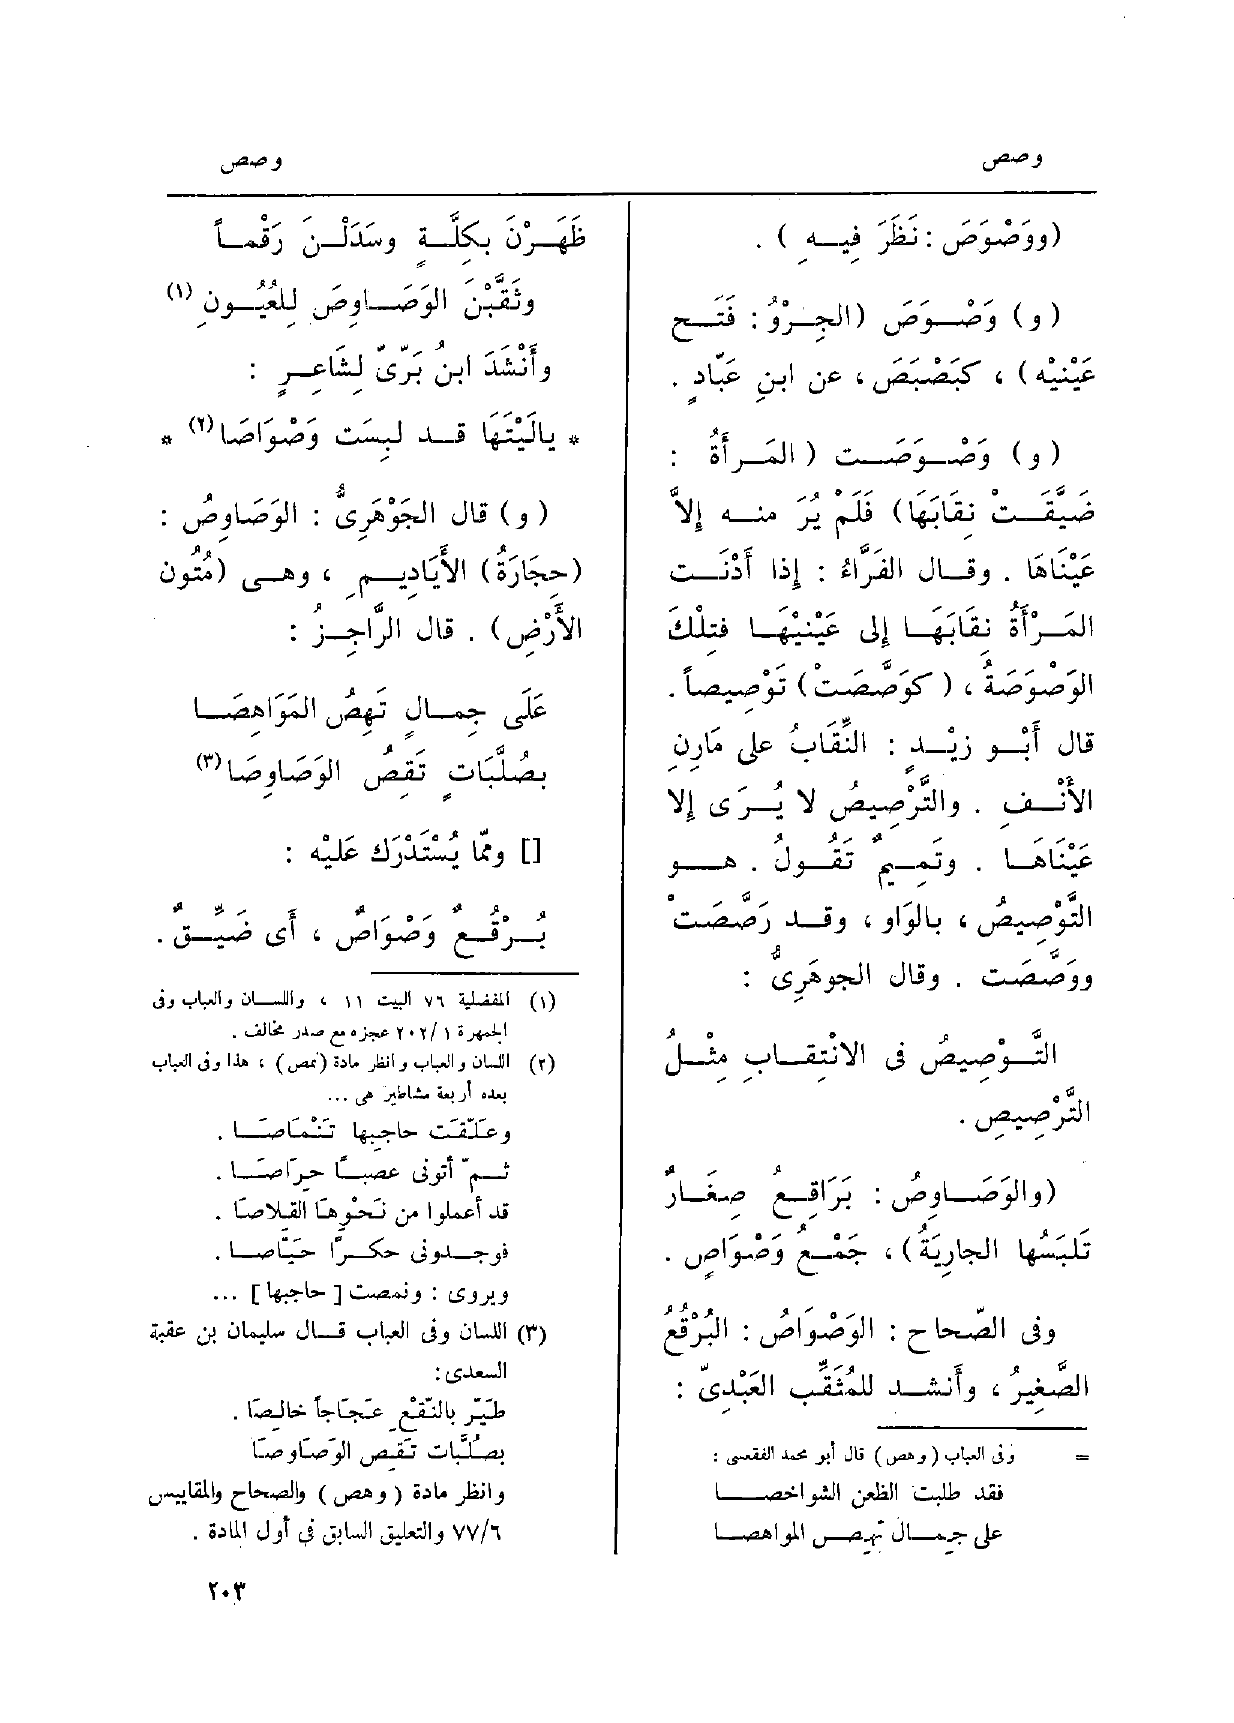 وصص
(ووَصْوَصَ : نَظَرَ فِيــهِ ) .
(و) وَصْــوَصَ (الجِــرْوُ : فَتَــح
عَيْنَيْه) ، كبَصْبَصَ ، عن ابنِ عَبّادٍ .
(و) وَصْــوَصَــت ( المَــرأَةُ :
ضَيَّقَــتْ نِقَابَهَا) فَلَمْ يُرَ منــه إلاَّ
عَيْنَاهَا . وقــال الفَرَّاءُ : إذا أَدْنَــت
المَــرْأَةُ نِقَابَهَــا إلى عَيْنَيْهَــا فتِلْكَ
الوَصْوَصَةُ ، (كوَصَّصَتْ) تَوْصِيصاً .
قال أَبُــو زَيْــد : النِّقَابُ على مَارِنِ
الأَنْــفِ . والتَّرْصِيصُ لا يُــرَى إلا
عَيْنَاهَــا . وتَمِــيمٌ تَقُــولُ . هــو
التَّوْصِيصُ ، بالوَاوِ ، وقــد رَصَّصَتْ
ووَصَّصَت . وقال الجوهَرِىُّ :
التَّــوْصِيصُ فى الانْتِقــابِ مثْــلُ
التَّرْصِيصِ .
(والوَصَــاوِصُ : بَرَاقِــعُ صِغَــارٌ
تَلبَسُها الجارِيَةُ) ، جَمْــعُ وَصْوَاصٍ .
وفى الصّحاح : الوَصْوَاصُ : البُرْقُعُ
الصَّغِيرُ ، وأَنشــد للمُثَقِّب العَبْدِىّ :
= وفى العباب (وهص) قال أبو محمد الفقعسى :
فقد طلبت الظعن الشواخصــا
على جِمــال تَهِصــ المواهصــا
وصص
ظَهَــرْنَ بكِلَّــةٍ وسَدَلْــنَ رَقْمــاً
وثَقَّبْنَ الوَصَــاوِصَ للعُيُــونِ (١)
وأَنْشَدَ ابنُ بَرّىّ لِشَاعِــرٍ :
* يالَيْتَهَا قــد لَبِسَت وَصْوَاصَا (٢) *
(و) قال الجَوْهَرِىُّ : الوَصَاوِصُ :
(حِجَارَةُ) الأَيَادِيــمِ ، وهــى (مُتُون
الأَرْضِ) . قال الرَّاجِــزُ :
عَلَى جِمــالٍ تَهِصُ المَوَاهِصَــا
بصُلَّبَاتٍ تَقِصُ الوَصَاوِصَا (٣)
[] وممّا يُسْتَدْرَك عَلَيْه :
بُــرْقُــعٌ وَصْوَاصٌ ، أَى ضَيِّــقٌ .
(١) المفضلية ٧٦ البيت ١١ ، واللســان والعباب وفى
الجمهرة ٢٠٢/١ عجزه مع صدر مخالف .
(٢) اللسان والعباب وانظر مادة (نمص) ، هذا وفى العباب
بعده أربعة مشاطير هى ...
وعَلَّقَت حاجِبها تَنْمَاصَــا .
ثــمّ أتونى عصباً حِرَاصَــا .
قد أعملوا من نَحْوِهَا القِلاصَا .
فوجــدونى حكــرًا حَيَّاصَــا .
ويروى : ونمصت [ حاجبها ] ...
(٣) اللسان وفى العباب قــال سليمان بن عقبة
السعدى :
طَيّر بالنّقع عَجَاجاً خالِصَا .
بصُلَّبات تَقِص الوَصَاوصَا
وانظر مادة ( وهص ) والصحاح والمقاييس
٧٧/٦ والتعليق السابق فى أول المادة .
٢٠٣